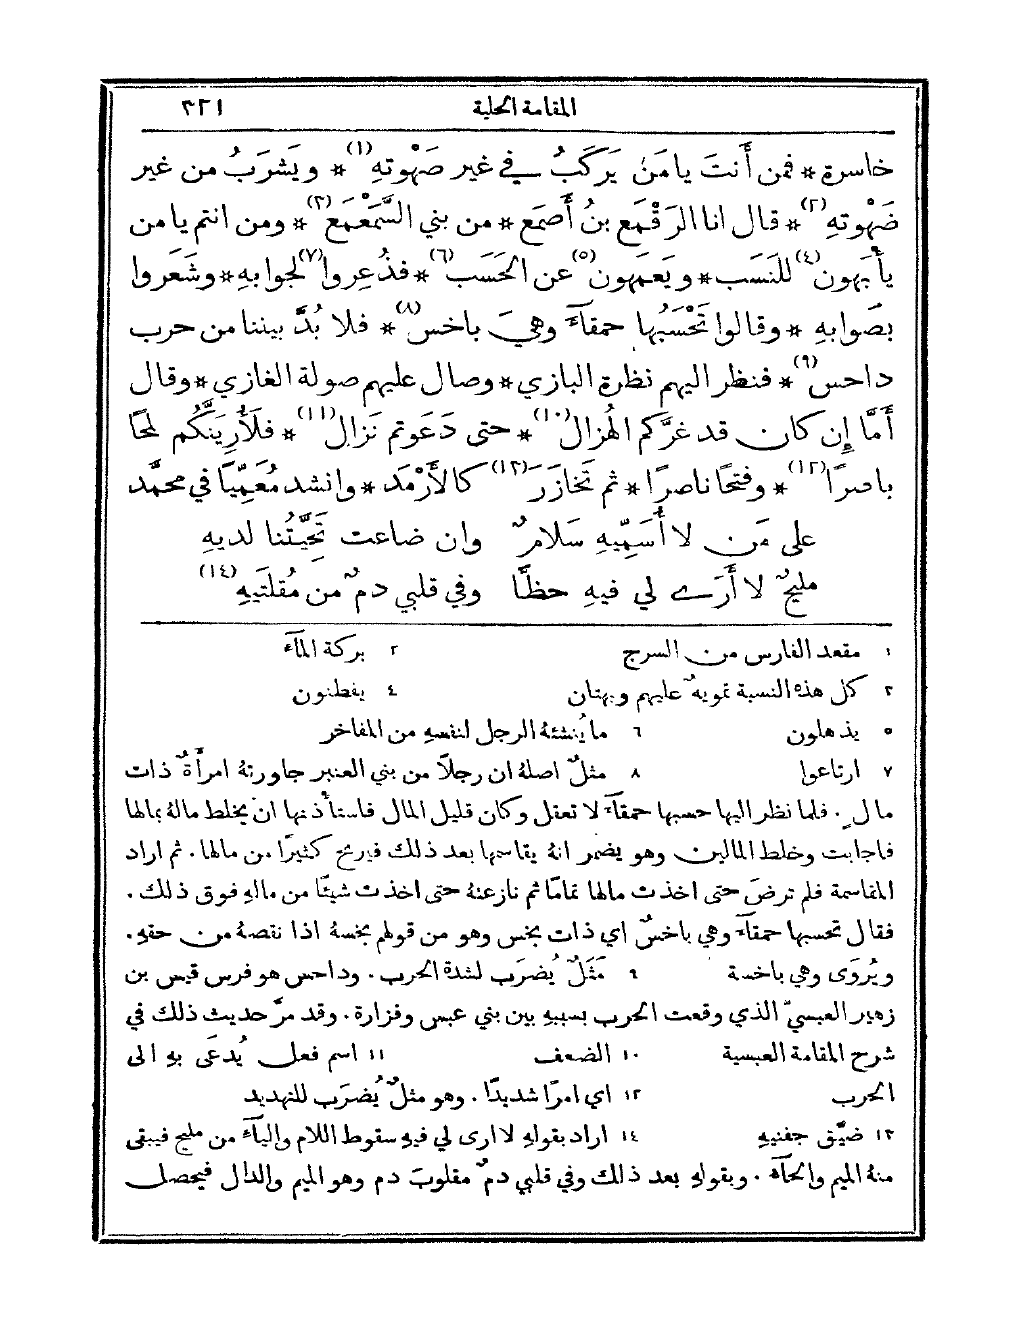 المقامة الحلبية ٣٢١
خاسرة * فمن أَنتَ يا مَنْ يَركَبُ في غير صَهْوتهِ(١) * ويَشرَبُ من غير
ضَهْوتهِ(٢) * قال انا الرَقْمَع بنُ أَصمَع * من بني السَّمَعْمَع(٣) * ومن انتم يا من
يأبَهون(٤) للنَسَب * ويَعمَهون(٥) عن الحَسَب(٦) * فذُعِروا(٧) لجوابهِ * وشَعَروا
بصَوابهِ * وقالوا تَحْسَبُها حمقآءَ وهيَ باخس(٨) * فلا بُدَّ بيننا من حرب
داحس(٩) * فنظر اليهم نظرة البازي * وصال عليهم صولة الغازي * وقال
أَمَّا إِن كان قد غرَّكم الهُزال(١٠) * حتى دَعَوتم نَزالِ(١١) * فلَأُرِيَنَّكم لمحًا
باصرًا(١٢) * وفتحًا ناصرًا * ثم تَخازَرَ(١٣) كالأَرْمَد * وانشد مُعَمِّيًا في محمَّد
على مَن لا أُسَمِّيهِ سَلامٌ وان ضاعت تَحَيَّتُنا لديهِ
مليحٌ لا أَرَى لي فيهِ حظًّا وفي قلبي دمٌ من مُقلَتَيهِ(١٤)
١ مقعد الفارس من السرج ٢ بركة المآء
٣ كل هذه النسبة تمويهٌ عليهم وبهتان ٤ يفطنون
٥ يذهلون ٦ ما يُنشئهُ الرجل لنفسهِ من المفاخر
٧ ارتاعوا ٨ مثلٌ اصلهُ ان رجلًا من بني العنبر جاورتهُ امرأَةٌ ذات
مالٍ. فلما نظر اليها حسبها حمقآءَ لا تعقل وكان قليل المال فاستأذنها ان يخلط مالهُ بمالها
فاجابت وخلط المالين وهو يضمر انهُ يقاسمها بعد ذلك فيربح كثيرًا من مالها. ثم اراد
المقاسمة فلم ترضَ حتى اخذت مالها تمامًا ثم نازعتهُ حتى اخذت شيئًا من مالهِ فوق ذلك.
فقال تحسبها حمقآءَ وهي باخسٌ اي ذات بخس وهو من قولهم بخسهُ اذا نقصهُ من حقهِ.
ويُروَى وهي باخسة ٩ مَثَلٌ يُضرَب لشدة الحرب. وداحس هو فرس قيس بن
زهير العبسيّ الذي وقعت الحرب بسببهِ بين بني عبس وفزارة. وقد مرَّ حديث ذلك في
شرح المقامة العبسية ١٠ الضعف ١١ اسم فعل يُدعَى بهِ الى
الحرب ١٢ اي امرًا شديدًا. وهو مثلٌ يُضرَب للتهديد
١٣ ضيَّق جفنيهِ ١٤ اراد بقولهِ لا ارى لي فيهِ سقوط اللام واليآء من مليح فيبقى
منهُ الميم والحآء. وبقولهِ بعد ذلك وفي قلبي دمٌ مقلوبَ دم وهو الميم والدال فيحصل